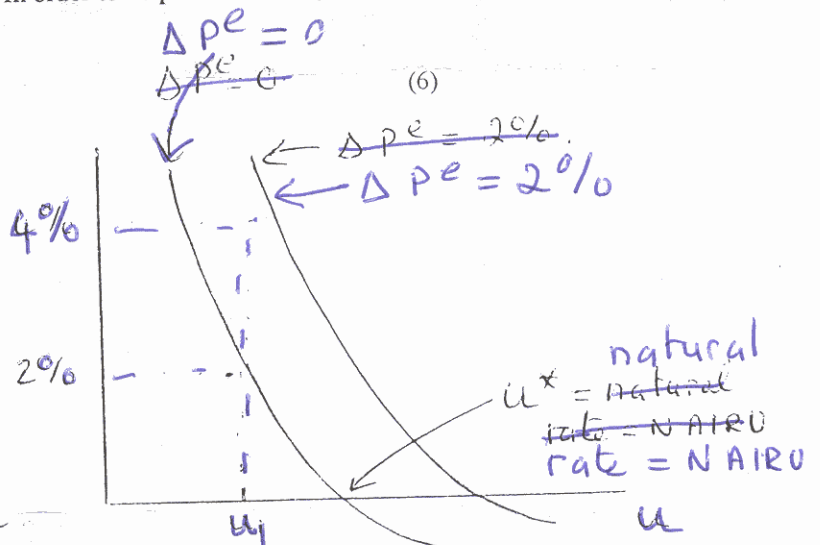 Δ Pᵉ = 0
Δ Pᵉ = 0
(6)
Δ Pᵉ = 2%.
Δ Pᵉ = 2%
4%
2%
natural
u* = natural
rate = NAIRU
rate = NAIRU
u₁
u